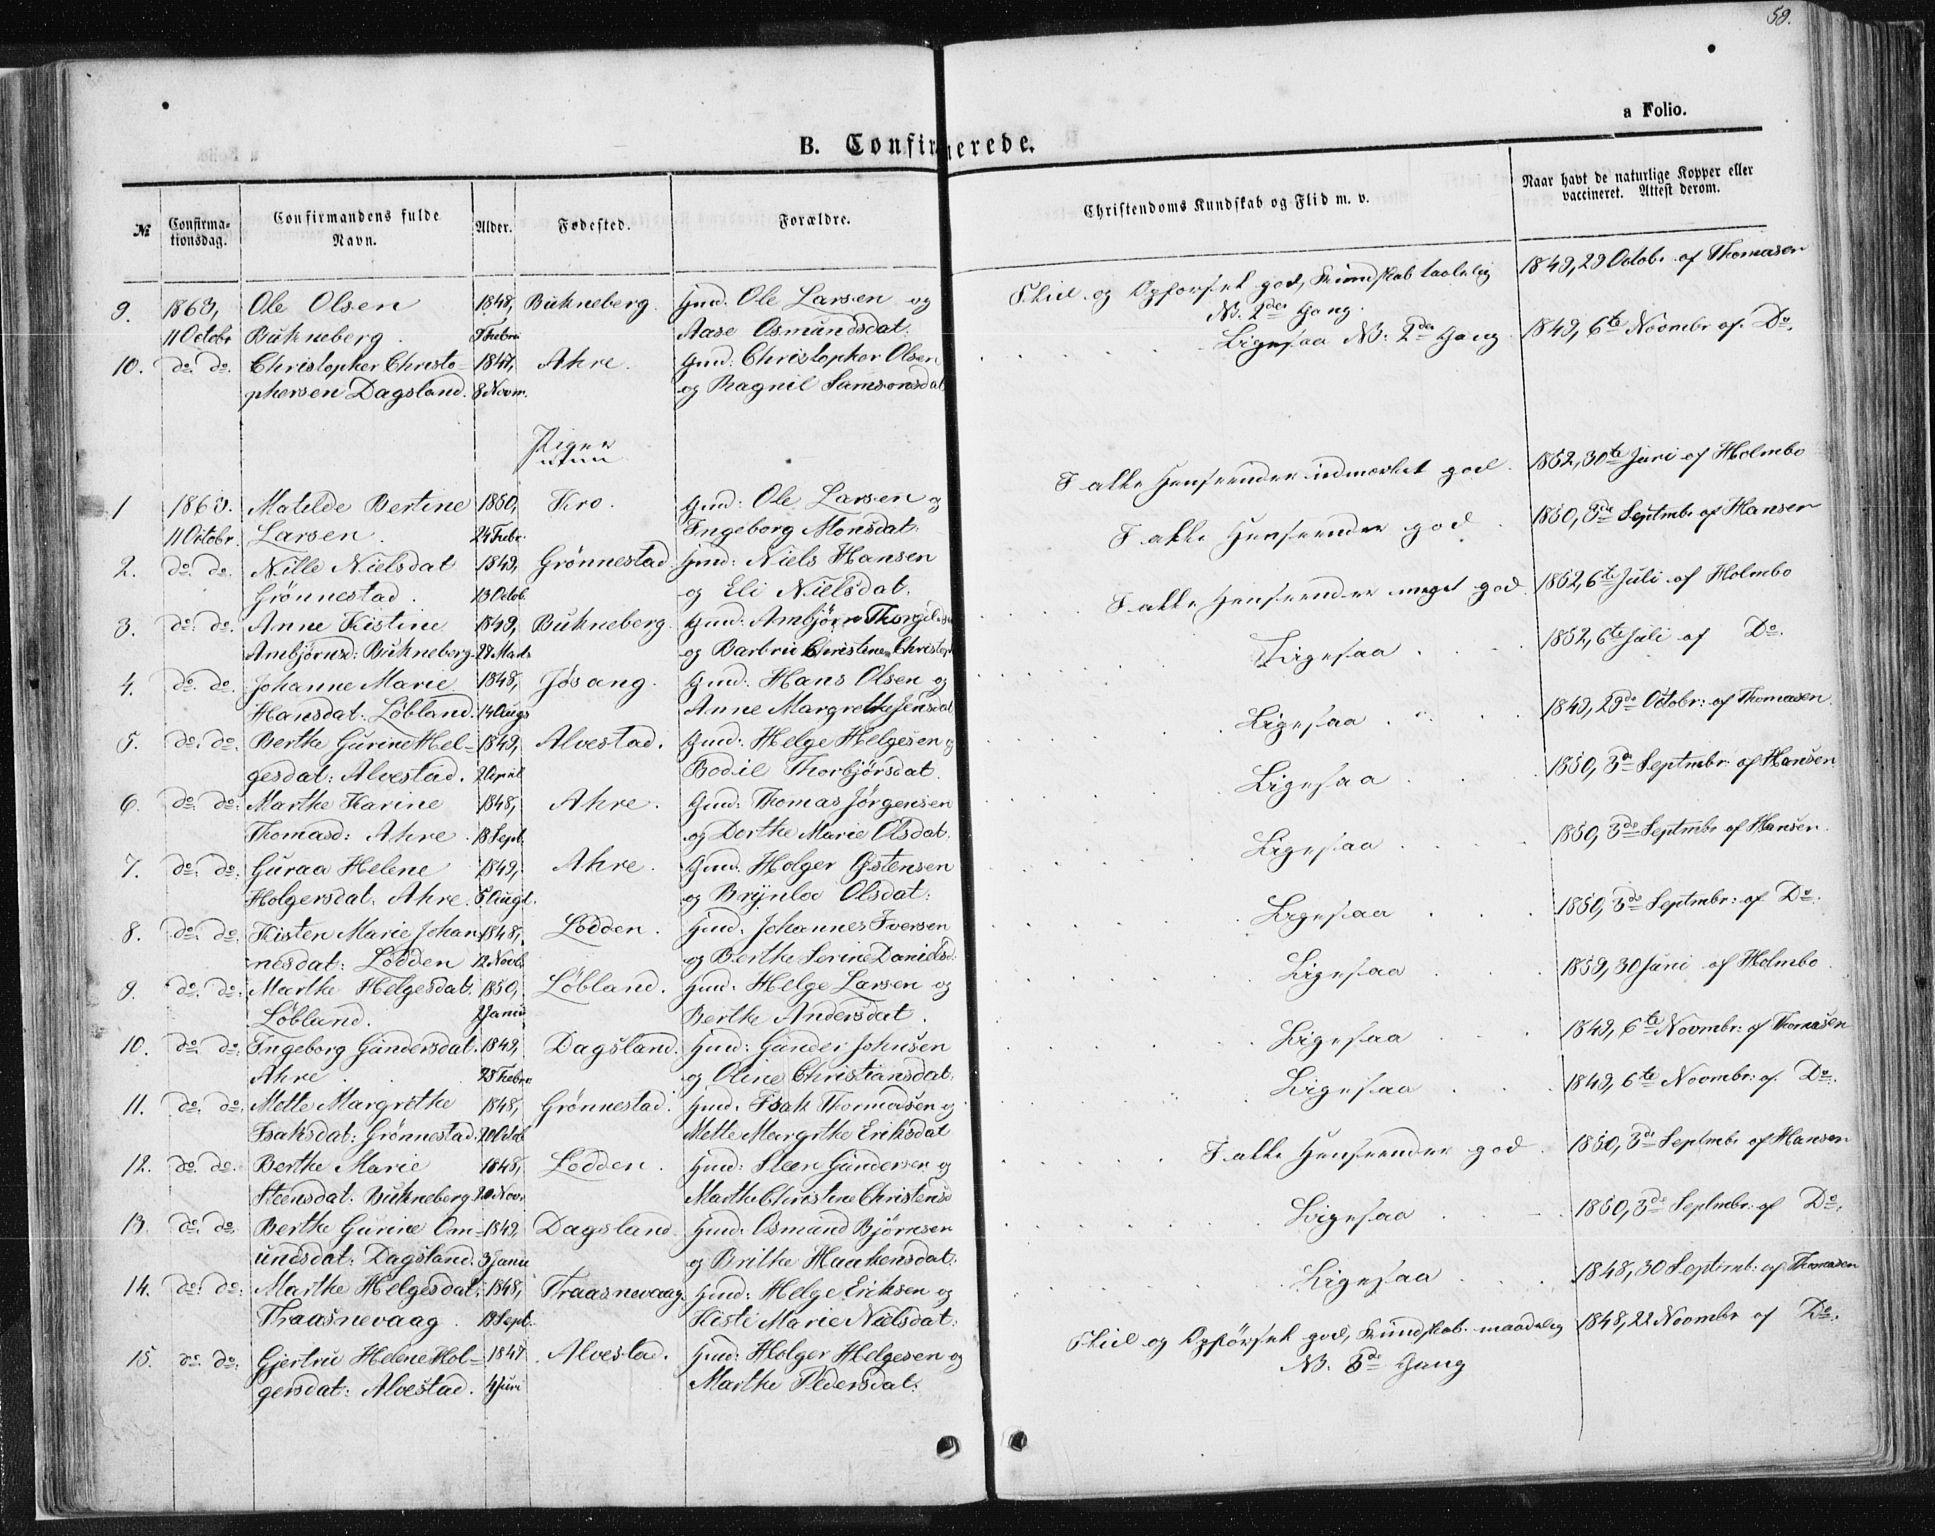 59.
a Folio.
B. Confirmerede.
№ Confirma-tionsdag. Confirmandens fulde Navn. Alder. Fødested. Forældre. Christendoms Kundskab og Flid m. v. Naar havt de naturlige Kopper eller vaccineret. Attest derom.
9. 1863, Ole Olsen 1848, Buhneberg. Gmd: Ole Larsen og Skik og Opførsel god, Kundskab taalelig 1849, 29 Octobr af Thomasen
11 Octobr Buhneberg. 9 Febr: Aase Osmundsdat. NB. 2den Gang.
10. do. do. Christopher Christo- 1847, Ahre. Gmd: Christopher Olsen Ligesaa NB: 2den Gang 1849, 6te Novmbr af Do.
phersen Dagsland. 8 Novm. og Ragnil Samsonsdat
Piger
1 1863. Matilde Bertine 1850, Kro. Gmd: Ole Larsen og I alle Henseender udmærket god. 1852, 30te Juni af Holmbo
11 Octobr. Larsen. 24 Febr: Ingeborg Monsdat:
2. do. do. Nille Nielsdat 1849, Grønnestad Gmd: Niels Hansen I alle Henseender god 1850, 3de Septmbr af Hansen
Grönnestad. 13 Octob. og Eli Nielsdat.
3. do. do. Anne Kistine 1849, Buhneberg. Gmd: Ambjørn Thorgils I alle Henseender meget god 1852, 6te Juli af Holmbo
Ambjörnsd: Buhneberg. 27 Marts og Barbru Christine Christop
4. do. do. Johanne Marie 1848, Jøsang. Gmd: Hans Olsen og Ligesaa 1852, 6te Juli af Do.
Hansdat. Løbland. 14 Augs Anne Margrethe Jensdat
5. do. do. Berthe Gurine Hel- 1849, Alvestad. Gmd: Helge Helgesen og Ligesaa 1849, 29de Octobr: af Thomasen
gesdat: Alvestad. 2 April Bodil Thorbjörsdat.
6. do. do. Marthe Karine 1848, Ahre. Gmd: Thomas Jørgensen Ligesaa 1850, 3de Septmbr af Hansen
Thomasd: Ahre. 13 Sept. og Dorthe Marie Olsdat.
7. do. do. Guraa Helene 1849, Ahre. Gmd. Holger Østensen Ligesaa 1850, 3de Septmbr af Hansen.
Holgersdat: Ahre. 5 Augt. og Brynlov Olsdat:
8. do. do. Kisten Marie Johan- 1848, Lodden. Gmd: Johannes Iversen Ligesaa 1850, 3de Septmbr: af Do.
nesdat: Lodden 12 Novb og Berthe Serine Danielsd.
9. do. do. Marthe Helgesdat. 1850, Løbland. Gmd: Helge Larsen og Ligesaa 1859, 30 Juni af Holmbo
Löbland. 2 Janu Berthe Andersdat.
10. do. do. Ingeborg Gundersdat. 1849, Dagsland. Gmd: Gunder Johnsen Ligesaa 1849, 6te Novmbr: af Thomasen
Ahre 25 Febru og Oline Christiansdat.
11. do. do. Mette Margrethe 1848, Grønnestad. Gmd. Isak Thomasen og Ligesaa 1849, 6te Novmbr: af. Do.
Isaksdat: Grønnestad. 20 Octob Mette Margrethe Eriksdat
12. do. do. Berthe Marie 1848, Lodden. Gmd: Steen Gundersen og I alle Henseender god. 1850, 3de Septmbr af Hansen
Steensdat. Buhneberg 20 Novr Marthe Christine Christensd
13. do. do. Berthe Gurine Om- 1849, Dagsland Gmd: Osmund Bjørnsen Ligesaa 1850, 3de Septmbr: af Do.
undsdat: Dagsland. 3 Janu og Brithe Haakensdat:
14. do. do. Marthe Helgesdat. 1848, Traasnevaag. Gmd: Helge Eriksen og Ligesaa 1848, 30 Septmb: af Thomasen
Traasnevaag. 19 Sept. Kisti Marie Nielsdat:
15. do. do. Gjertru Helene Hol- 1847 Alvestad. Gmd: Holger Helgesen og Skik og Opførsel god, Kundskab maadelig 1848, 22 Novmbr af Do.
gersdat: Alvestad. 4 Juni Marthe Pedersdat: NB. 3de Gang